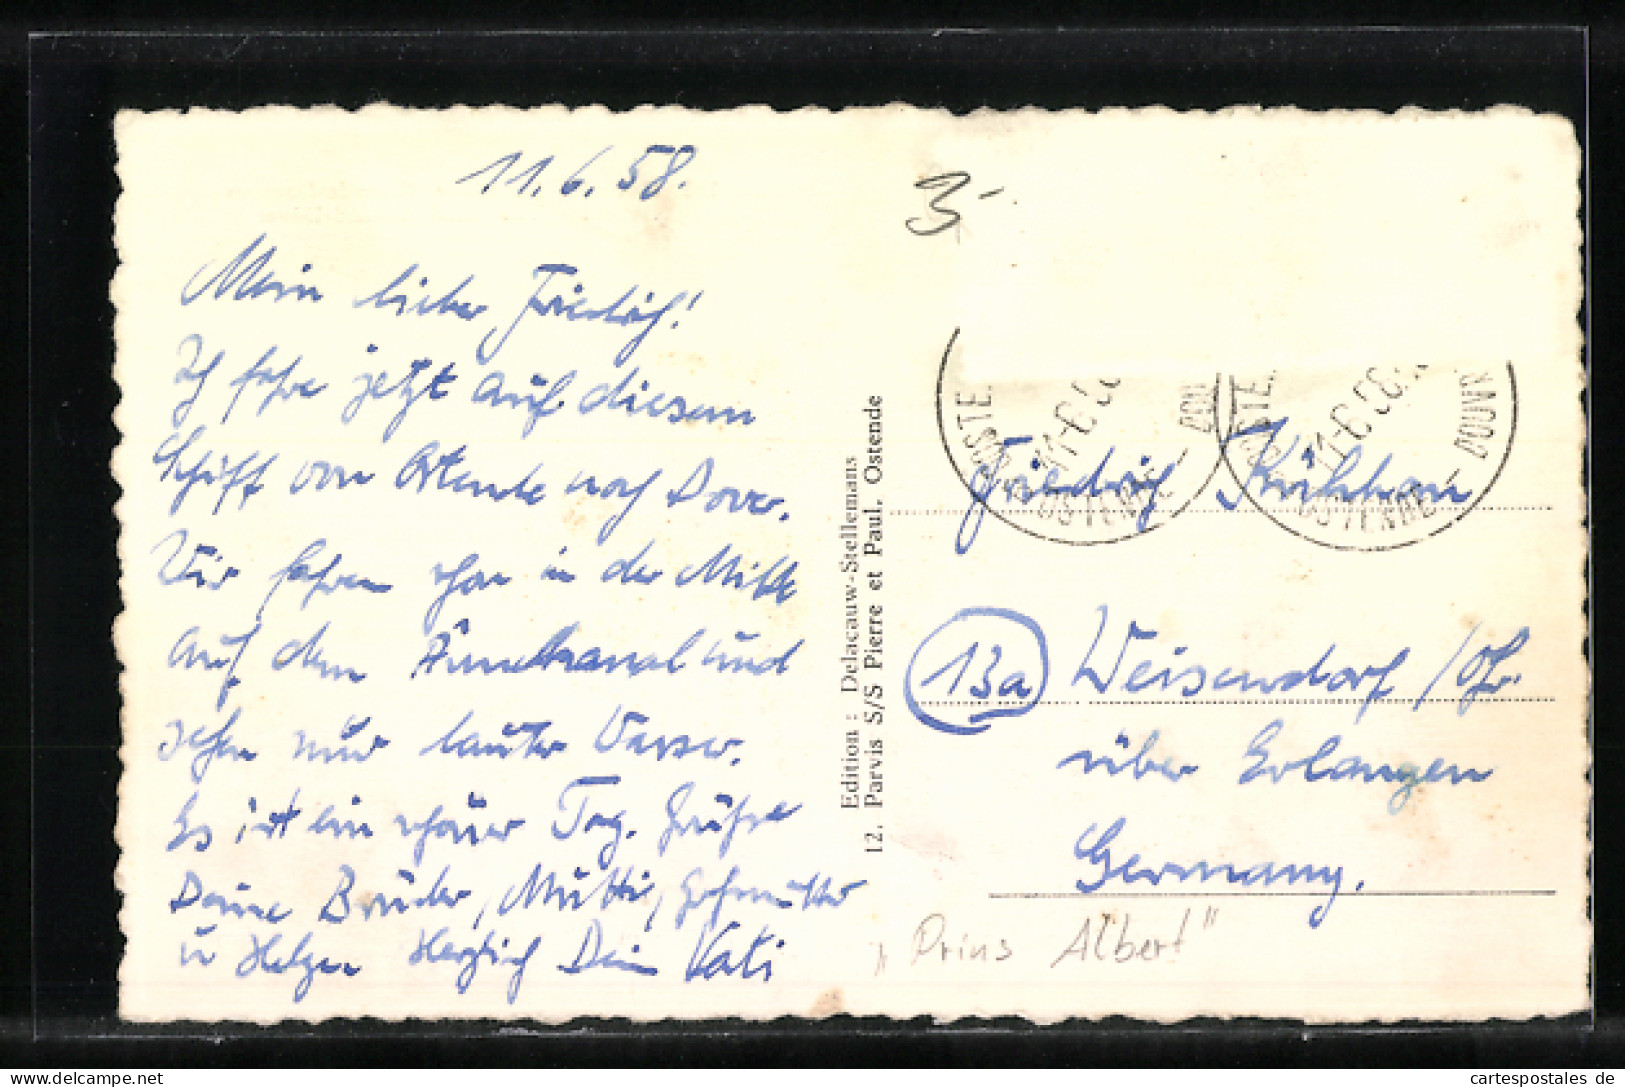 11.6.58.
Mein lieber Friedrich!
Ich fahre jetzt auf diesem
Schiff von Ostende nach Dover.
Wir fahren schon in der Mitte
auf dem Ärmelkanal und
sehen nur lauter Wasser.
Es ist ein schöner Tag. Grüße
Deine Brüder, Mutti, Großmutter
u Helgen Herzlich Dein Vati
Edition : Delacauw-Stellemans
12, Parvis S/S Pierre et Paul, Ostende
3-
OOSTENDE - DOUVR
11-6
Friedrich
13a Weisendorf /Ofr.
über Erlangen
Germany.
"Prins Albert"
cartespostales de